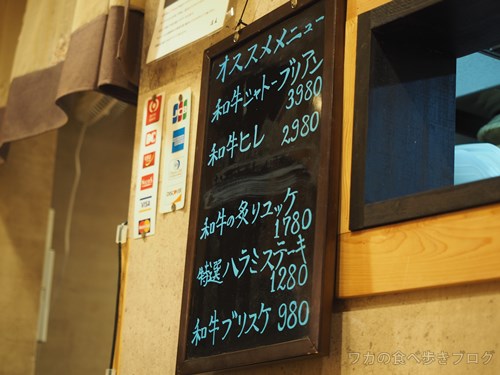 オススメメニュー
和牛シャトーブリアン
3980
和牛ヒレ 2980
和牛の炙りユッケ
1780
特選ハラミステーキ
1280
和牛ブリスケ 980
JCB
VISA
ワカの食べ歩きブログ